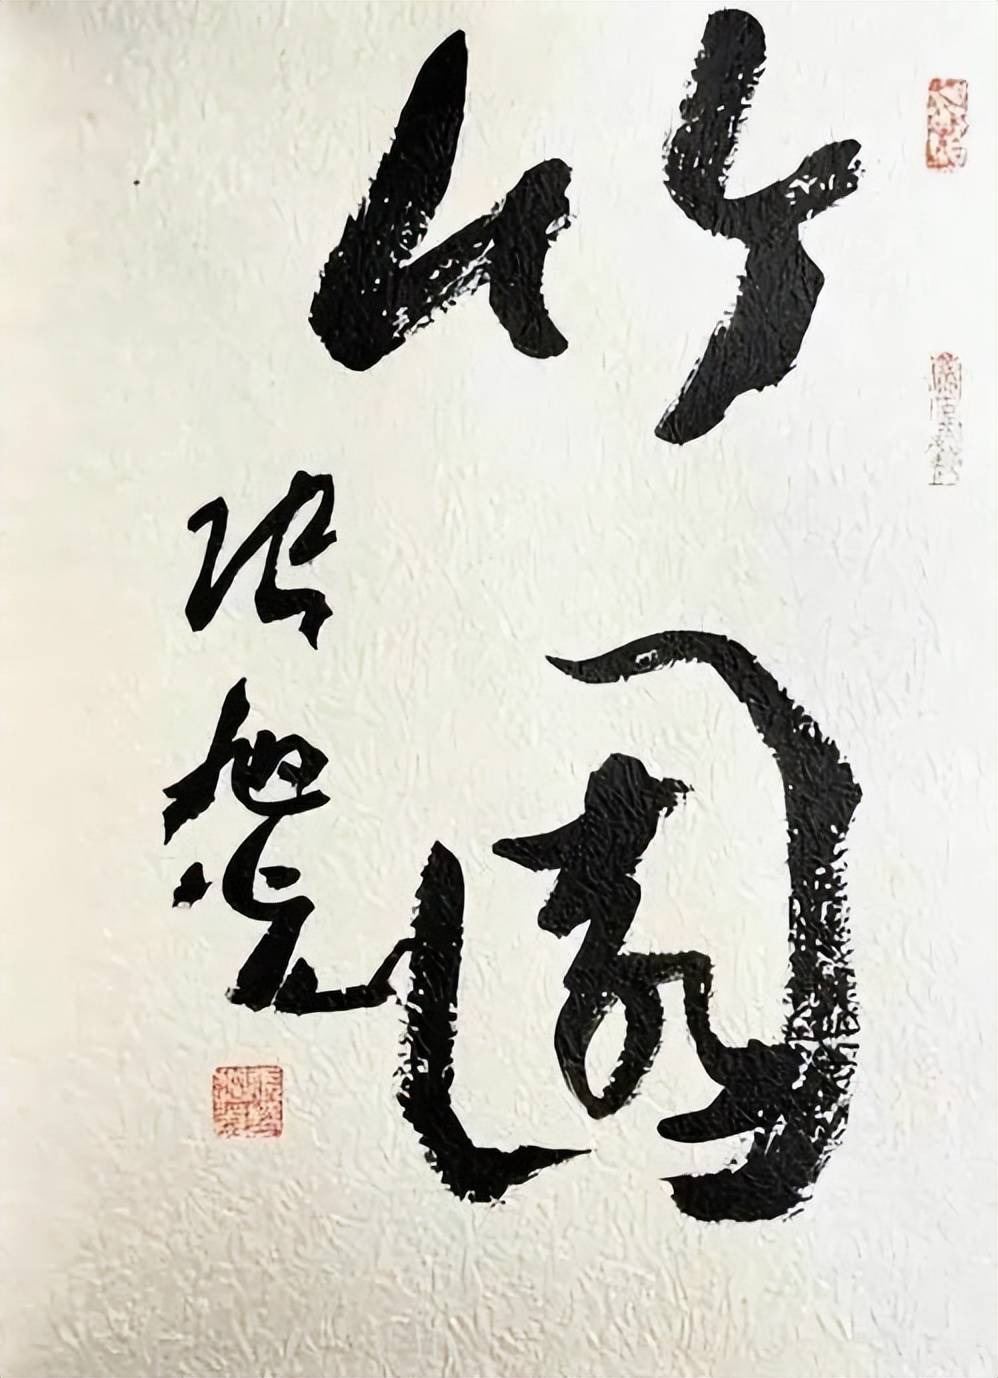 竹園
张旭光